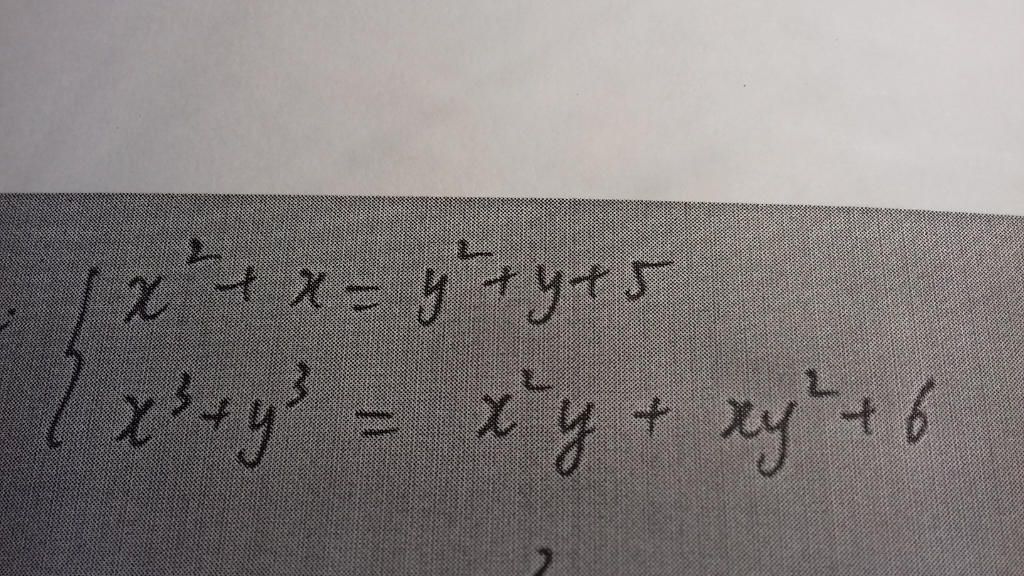 x² + x = y² + y + 5
x³ + y³ = x²y + xy² + 6